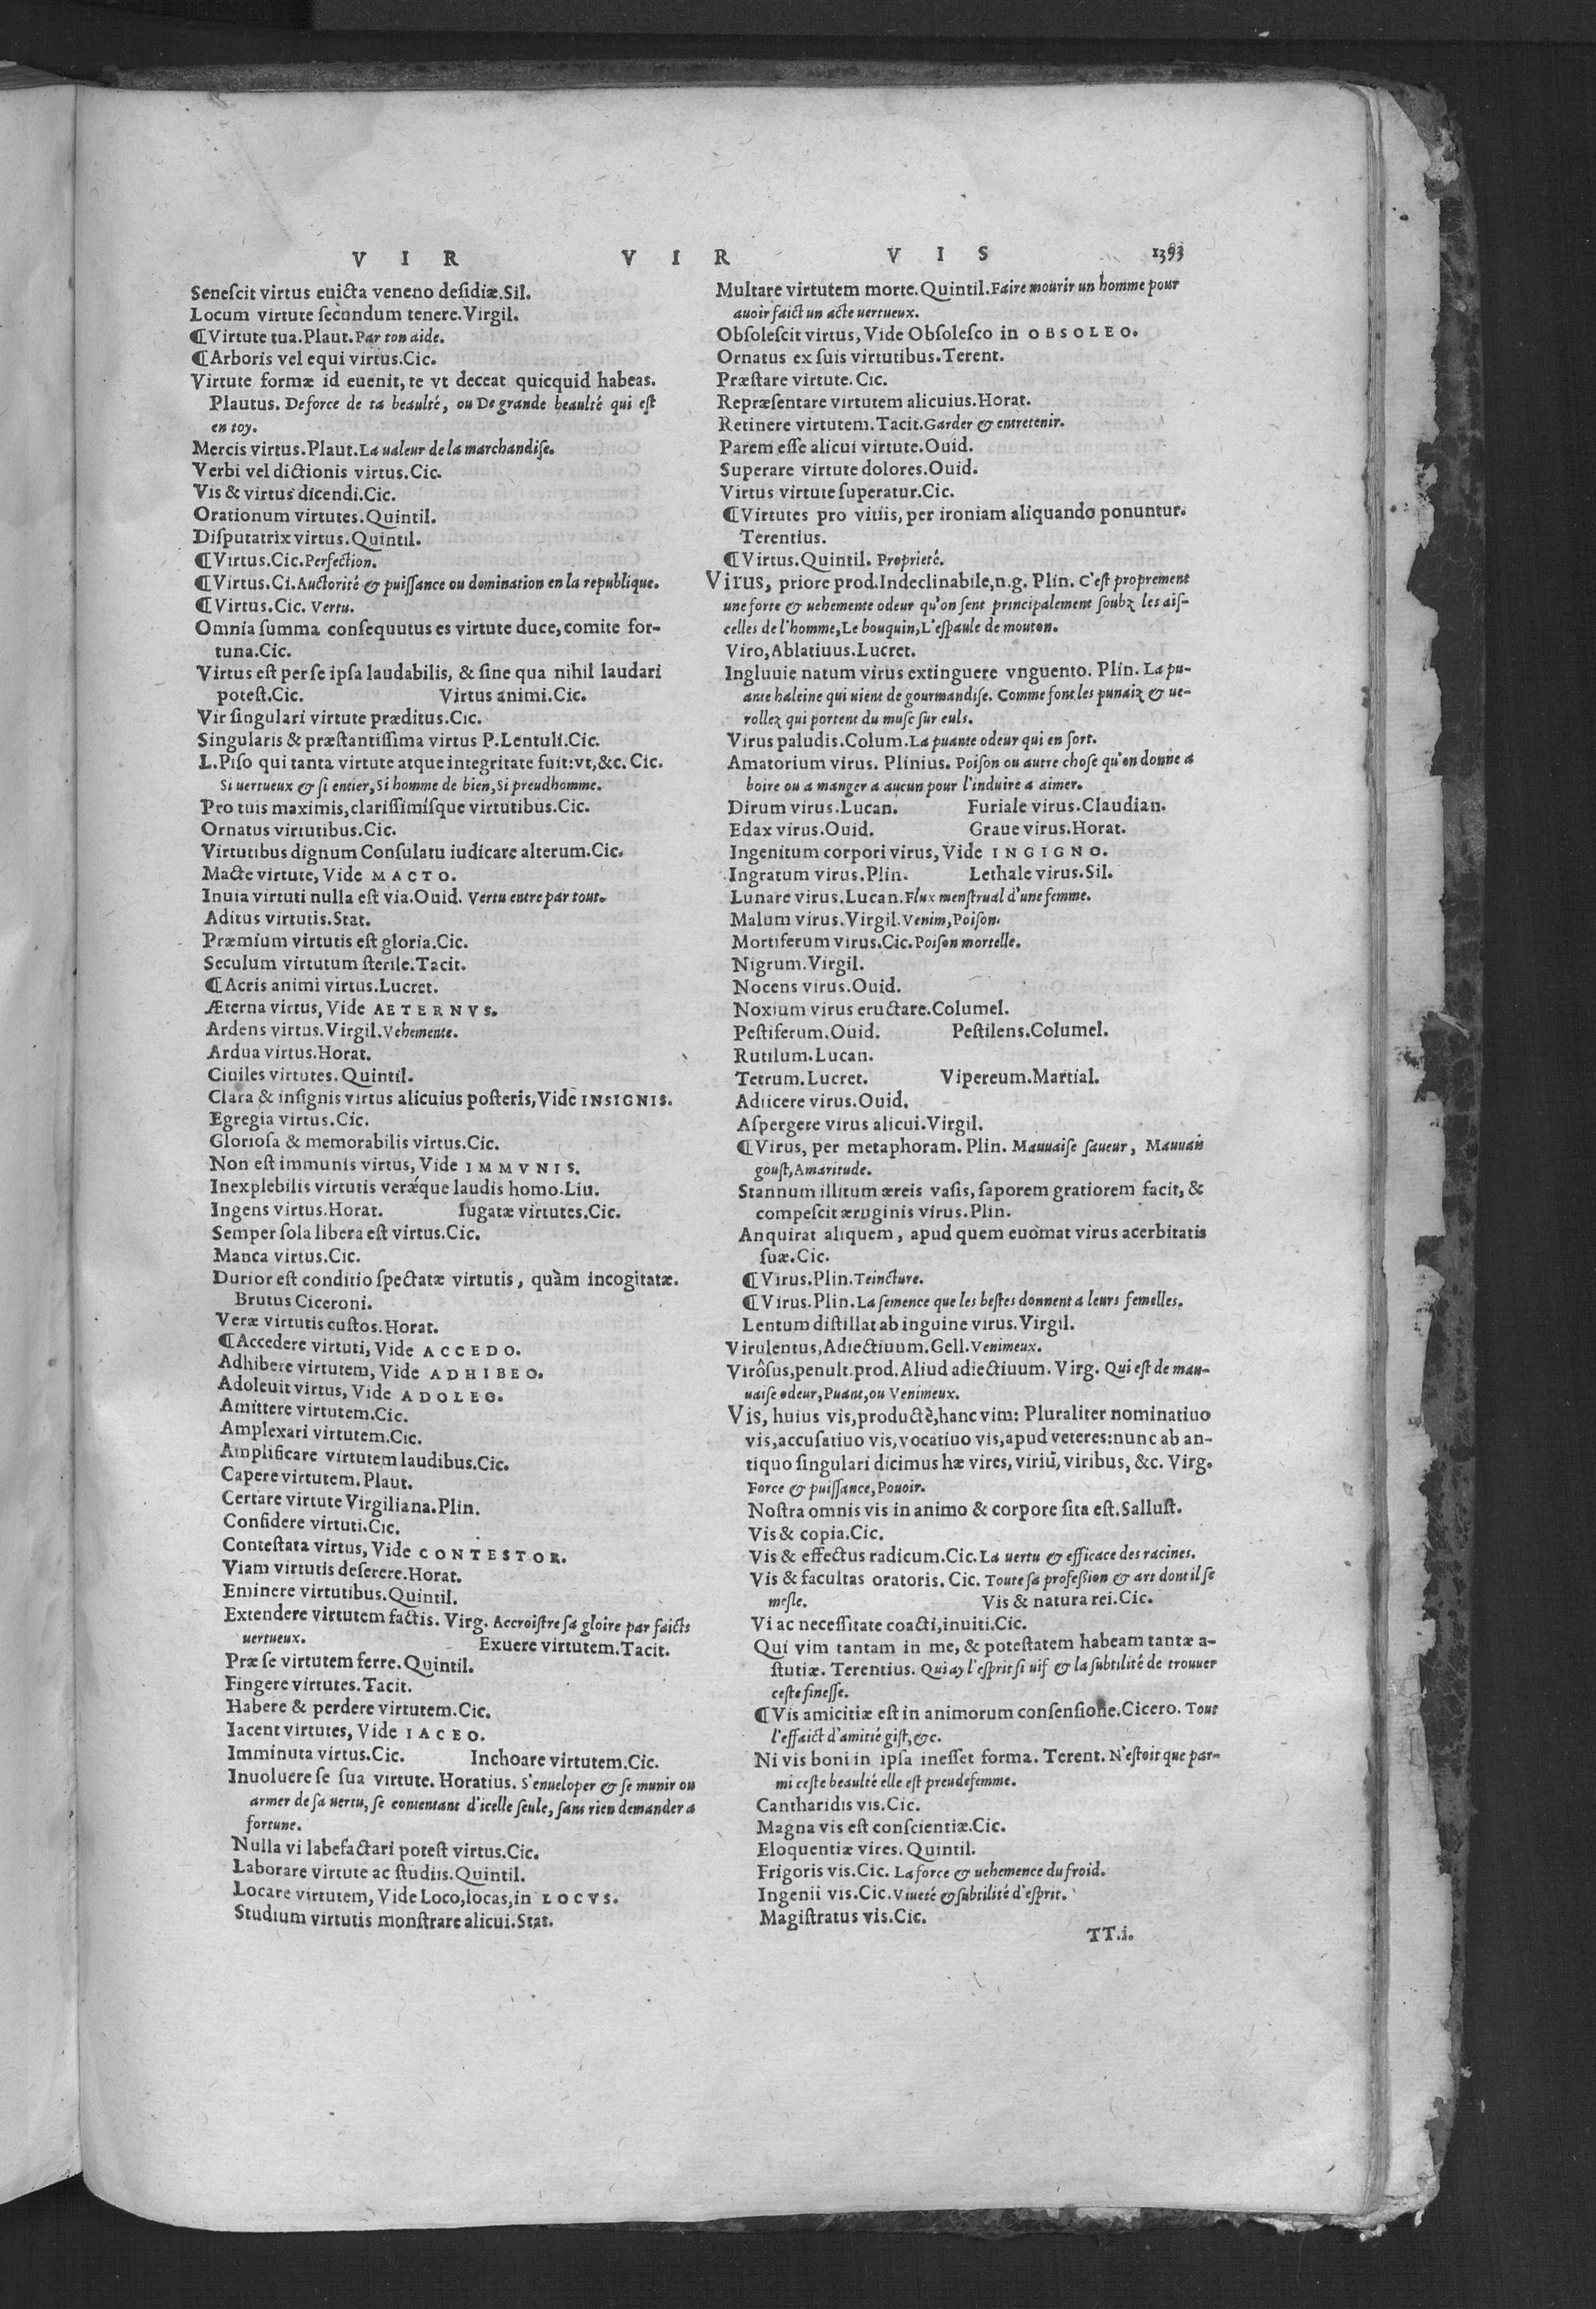 V I R V I R V I S 1393
Senescit virtus euicta veneno desidiæ.Sil.
Locum virtute secundum tenere.Virgil.
¶Virtute tua.Plaut.Par ton aide.
¶Arboris vel equi virtus.Cic.
Virtute formæ id euenit, te vt deceat quicquid habeas.
Plautus. De force de ta beaulté, ou De grande beaulté qui est
en toy.
Mercis virtus.Plaut.La ualeur de la marchandise.
Verbi vel dictionis virtus.Cic.
Vis & virtus dicendi.Cic.
Orationum virtutes.Quintil.
Disputatrix virtus.Quintil.
¶Virtus.Cic.Perfection.
¶Virtus.Ci.Auctorité & puissance ou domination en la republique.
¶Virtus.Cic. Vertu.
Omnia summa consequutus es virtute duce, comite for-
tuna.Cic.
Virtus est per se ipsa laudabilis, & sine qua nihil laudari
potest.Cic. Virtus animi.Cic.
Vir singulari virtute præditus.Cic.
Singularis & præstantissima virtus P.Lentuli.Cic.
L.Piso qui tanta virtute atque integritate fuit:vt,&c. Cic.
Si uertueux & si entier, Si homme de bien, Si preudhomme.
Pro tuis maximis, clarissimisque virtutibus.Cic.
Ornatus virtutibus.Cic.
Virtutibus dignum Consulatu iudicare alterum.Cic.
Macte virtute, Vide MACTO.
Inuia virtuti nulla est via.Ouid. Vertu entre par tout.
Aditus virtutis.Stat.
Præmium virtutis est gloria.Cic.
Seculum virtutum sterile.Tacit.
¶Acris animi virtus.Lucret.
Æterna virtus, Vide AETERNVS.
Ardens virtus.Virgil.Vehemente.
Ardua virtus.Horat.
Ciuiles virtutes.Quintil.
Clara & insignis virtus alicuius posteris, Vide INSIGNIS.
Egregia virtus.Cic.
Gloriosa & memorabilis virtus.Cic.
Non est immunis virtus, Vide IMMVNIS.
Inexplebilis virtutis veræque laudis homo.Liu.
Ingens virtus.Horat. Iugatæ virtutes.Cic.
Semper sola libera est virtus.Cic.
Manca virtus.Cic.
Durior est conditio spectatæ virtutis, quàm incogitatæ.
Brutus Ciceroni.
Veræ virtutis custos.Horat.
¶Accedere virtuti, Vide ACCEDO.
Adhibere virtutem, Vide ADHIBEO.
Adoleuit virtus, Vide ADOLEO.
Amittere virtutem.Cic.
Amplexari virtutem.Cic.
Amplificare virtutem laudibus.Cic.
Capere virtutem.Plaut.
Certare virtute Virgiliana.Plin.
Confidere virtuti.Cic.
Contestata virtus, Vide CONTESTOR.
Viam virtutis deserere.Horat.
Eminere virtutibus.Quintil.
Extendere virtutem factis. Virg. Accroistre sa gloire par faicts
uertueux. Exuere virtutem.Tacit.
Præ se virtutem ferre.Quintil.
Fingere virtutes.Tacit.
Habere & perdere virtutem.Cic.
Iacent virtutes, Vide IACEO.
Imminuta virtus.Cic. Inchoare virtutem.Cic.
Inuoluere se sua virtute. Horatius. S'enueloper & se munir ou
armer de sa uertu, se contentant d'icelle seule, sans rien demander a
fortune.
Nulla vi labefactari potest virtus.Cic.
Laborare virtute ac studiis.Quintil.
Locare virtutem, Vide Loco, locas, in LOCVS.
Studium virtutis monstrare alicui.Stat.
Multare virtutem morte.Quintil.Faire mourir un homme pour
auoir faict un acte uertueux.
Obsolescit virtus, Vide Obsolesco in OBSOLEO.
Ornatus ex suis virtutibus.Terent.
Præstare virtute. Cic.
Repræsentare virtutem alicuius.Horat.
Retinere virtutem.Tacit.Garder & entretenir.
Parem esse alicui virtute.Ouid.
Superare virtute dolores.Ouid.
Virtus virtute superatur.Cic.
¶Virtutes pro vitiis, per ironiam aliquando ponuntur.
Terentius.
¶Virtus.Quintil. Proprieté.
Virus, priore prod.Indeclinabile,n.g. Plin. C'est proprement
une forte & uehemente odeur qu'on sent principalement soubz les ais-
celles de l'homme, Le bouquin, L'espaule de mouton.
Viro, Ablatiuus.Lucret.
Ingluuie natum virus extinguere vnguento. Plin. La pu-
ante haleine qui uient de gourmandise. Comme font les punaiz & ue-
rollez qui portent du musc sur euls.
Virus paludis.Colum.La puante odeur qui en sort.
Amatorium virus. Plinius. Poison ou autre chose qu'on donne a
boire ou a manger a aucun pour l'induire a aimer.
Dirum virus.Lucan. Furiale virus.Claudian.
Edax virus.Ouid. Graue virus.Horat.
Ingenitum corpori virus, Vide INGIGNO.
Ingratum virus.Plin. Lethale virus.Sil.
Lunare virus.Lucan.Flux menstrual d'une femme.
Malum virus.Virgil.Venim,Poison.
Mortiferum virus.Cic.Poison mortelle.
Nigrum.Virgil.
Nocens virus.Ouid.
Noxium virus eructare.Columel.
Pestiferum.Ouid. Pestilens.Columel.
Rutilum.Lucan.
Tetrum.Lucret. Vipereum.Martial.
Adiicere virus.Ouid.
Aspergere virus alicui.Virgil.
¶Virus, per metaphoram. Plin. Mauuaise saueur, Mauuais
goust, Amaritude.
Stannum illitum æreis vasis, saporem gratiorem facit, &
compescit æruginis virus.Plin.
Anquirat aliquem, apud quem euomat virus acerbitatis
suæ.Cic.
¶Virus.Plin.Teincture.
¶Virus.Plin.La semence que les bestes donnent a leurs femelles.
Lentum distillat ab inguine virus.Virgil.
Virulentus, Adiectiuum.Gell.Venimeux.
Virôsus,penult.prod.Aliud adiectiuum. Virg. Qui est de mau-
uaise odeur, Puant, ou Venimeux.
Vis, huius vis,productè,hanc vim: Pluraliter nominatiuo
vis,accusatiuo vis,vocatiuo vis,apud veteres:nunc ab an-
tiquo singulari dicimus hæ vires, viriũ, viribus, &c. Virg.
Force & puissance, Pouoir.
Nostra omnis vis in animo & corpore sita est.Sallust.
Vis & copia.Cic.
Vis & effectus radicum.Cic.La uertu & efficace des racines.
Vis & facultas oratoris. Cic. Toute sa profession & art dont il se
mesle. Vis & natura rei.Cic.
Vi ac necessitate coacti, inuiti.Cic.
Qui vim tantam in me, & potestatem habeam tantæ a-
stutiæ. Terentius. Qui ay l'esprit si uif & la subtilité de trouuer
ceste finesse.
¶Vis amicitiæ est in animorum consensione.Cicero. Tout
l'effaict d'amitié gist,&c.
Ni vis boni in ipsa inesset forma. Terent. N'estoit que par-
mi ceste beaulté elle est preudefemme.
Cantharidis vis.Cic.
Magna vis est conscientiæ.Cic.
Eloquentiæ vires. Quintil.
Frigoris vis.Cic. La force & uehemence du froid.
Ingenii vis.Cic.Viueté & subtilité d'esprit.
Magistratus vis.Cic.
TT.i.